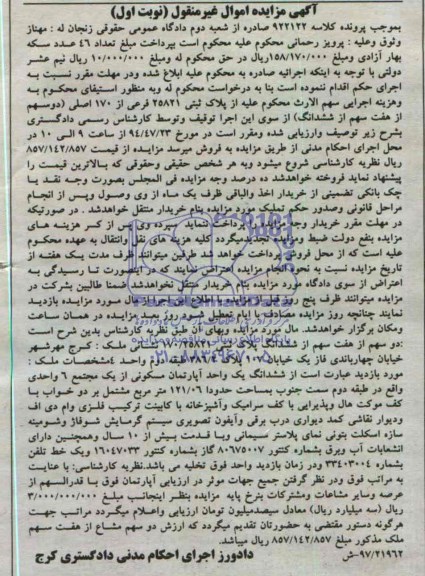 آگهی مزایده اموال غیرمنقول (نوبت اول)
بموجب پرونده کلاسه ۹۲۲۱۲۲ صادره از شعبه دوم دادگاه عمومی حقوقی زنجان له : مهناز
وثوق وعلیه : پرویز رحمانی محکوم علیه محکوم است بپرداخت مبلغ تعداد ۴۶ عدد سکه
بهار آزادی ومبلغ ۱۵۸/۱۷۰/۰۰۰ریال در حق محکوم له ومبلغ ۱۰/۰۰۰/۰۰۰ ریال نیم عشر
دولتی با توجه به اینکه اجرائیه صادره به محکوم علیه ابلاغ شده ودر مهلت مقرر نسبت به
اجرای حکم اقدام ننموده است بنا به درخواست محکوم له وبه منظور استیفای محکوم به
وهزینه اجرایی سهم الارث محکوم علیه از پلاک ثبتی ۲۵۸۲۱ فرعی از ۱۷۰ اصلی (دوسهم
از هفت سهم از ششدانگ) از سوی این اجرا توقیف وتوسط کارشناس رسمی دادگستری
بشرح زیر توصیف وارزیابی شده ومقرر است در مورخ ۹۴/۴۷/۲۳ از ساعت ۹ الی ۱۰ در
محل اجرای احکام مدنی از طریق مزایده به فروش میرسد مزایده از قیمت ۸۵۷/۱۴۲/۸۵۷
ریال نظریه کارشناسی شروع میشود وبه هر شخص حقیقی وحقوقی که بالاترین قیمت را
پیشنهاد نماید فروخته خواهدشد ده درصد وجه مزایده فی المجلس بصورت وجه نقد یا
چک بانکی تضمینی از خریدار اخذ والباقی ظرف یک ماه از وی وصول وپس از انجام
مراحل قانونی وصدور حکم تملیک مورد مزایده بنام خریدار منتقل خواهدشد . در صورتیکه
در مهلت مقرر خریدار وجه مزایده را پرداخت ننماید سپرده وی پس از کسر هزینه های
مزایده بنفع دولت ضبط ومزایده تجدیدمیگردد کلیه هزینه های نقل وانتقال به عهده محکوم
علیه است که از محل فروش پرداخت خواهد شد طرفین میتوانند ظرف مدت یک هفته از
تاریخ مزایده نسبت به نحوه انجام مزایده اعتراض نمایند که در اینصورت تا رسیدگی به
اعتراض از سوی دادگاه مورد مزایده بنام خریدار منتقل نخواهدشد ضمنا طالبین بشرکت در
مزایده میتوانند ظرف پنج روز قبل از مزایده با اطلاع این اجرا از مال مورد مزایده بازدید
نمایند چنانچه روز مزایده مصادف با ایام تعطیل شود روز بعد مزایده در همان ساعت
ومکان برگزار خواهدشد. مال مورد مزایده وبهای آن طبق نظریه کارشناس بدین شرح است
:دو سهم از هفت سهم از ششدانگ پلاک ثبتی مشخصات ملک : کرج مهرشهر
خیابان چهارباندی فاز یک خیابان ۱۰۷ پلاک طبقه دوم واحد ۴مشخصات ملک :
مورد بازدید عبارت است از ششدانگ یک واحد آپارتمان مسکونی از یک مجتمع ۶ واحدی
واقع در طبقه دوم سمت جنوب بمساحت حدودا ۱۲۱/۰۶ متر مربع مشتمل بر دو خواب با
کف موکت هال وپذیرایی با کف سرامیک وآشپزخانه با کابینت ترکیب فلزی وام دی اف
ودیوار نقاشی کمد دیواری درب برقی وآیفون تصویری سیستم گرمایش شوفاژ وشومینه
سازه اسکلت بتونی نمای پلاستر سیمانی وبا قدمت بیش از ۱۰ سال وهمچنین دارای
انشعابات آب وبرق بشماره کنتور ۸۰۶۷۵۰۰۷ گاز بشماره کنتور ۱۶۰۴۷۰۳۳ ویک خط تلفن
بشماره ۳۳۴۰۳۰۰۴ ودر زمان بازدید واحد فوق تخلیه می باشد.نظریه کارشناسی: با عنایت
به مراتب فوق ودر نظر گرفتن جمیع جهات موثر در ارزیابی آپارتمان فوق با قدرالسهم از
عرصه وسایر مشاعات ومشترکات بنرخ پایه مزایده بنظر اینجانب مبلغ ۳/۰۰۰/۰۰۰/۰۰۰
ریال (سه میلیارد ریال) معادل سیصدمیلیون تومان ارزیابی واعلام میگردد مراتب جهت
هرگونه دستور مقتضی به حضورتان تقدیم میگردد که ارزش دو سهم مشاع از هفت سهم
ملک مذکور مبلغ ۸۵۷/۱۴۲/۸۵۷ ریال میباشد.
۹۷/۲۱۹۶۲-ش
دادورز اجرای احکام مدنی دادگستری کرج